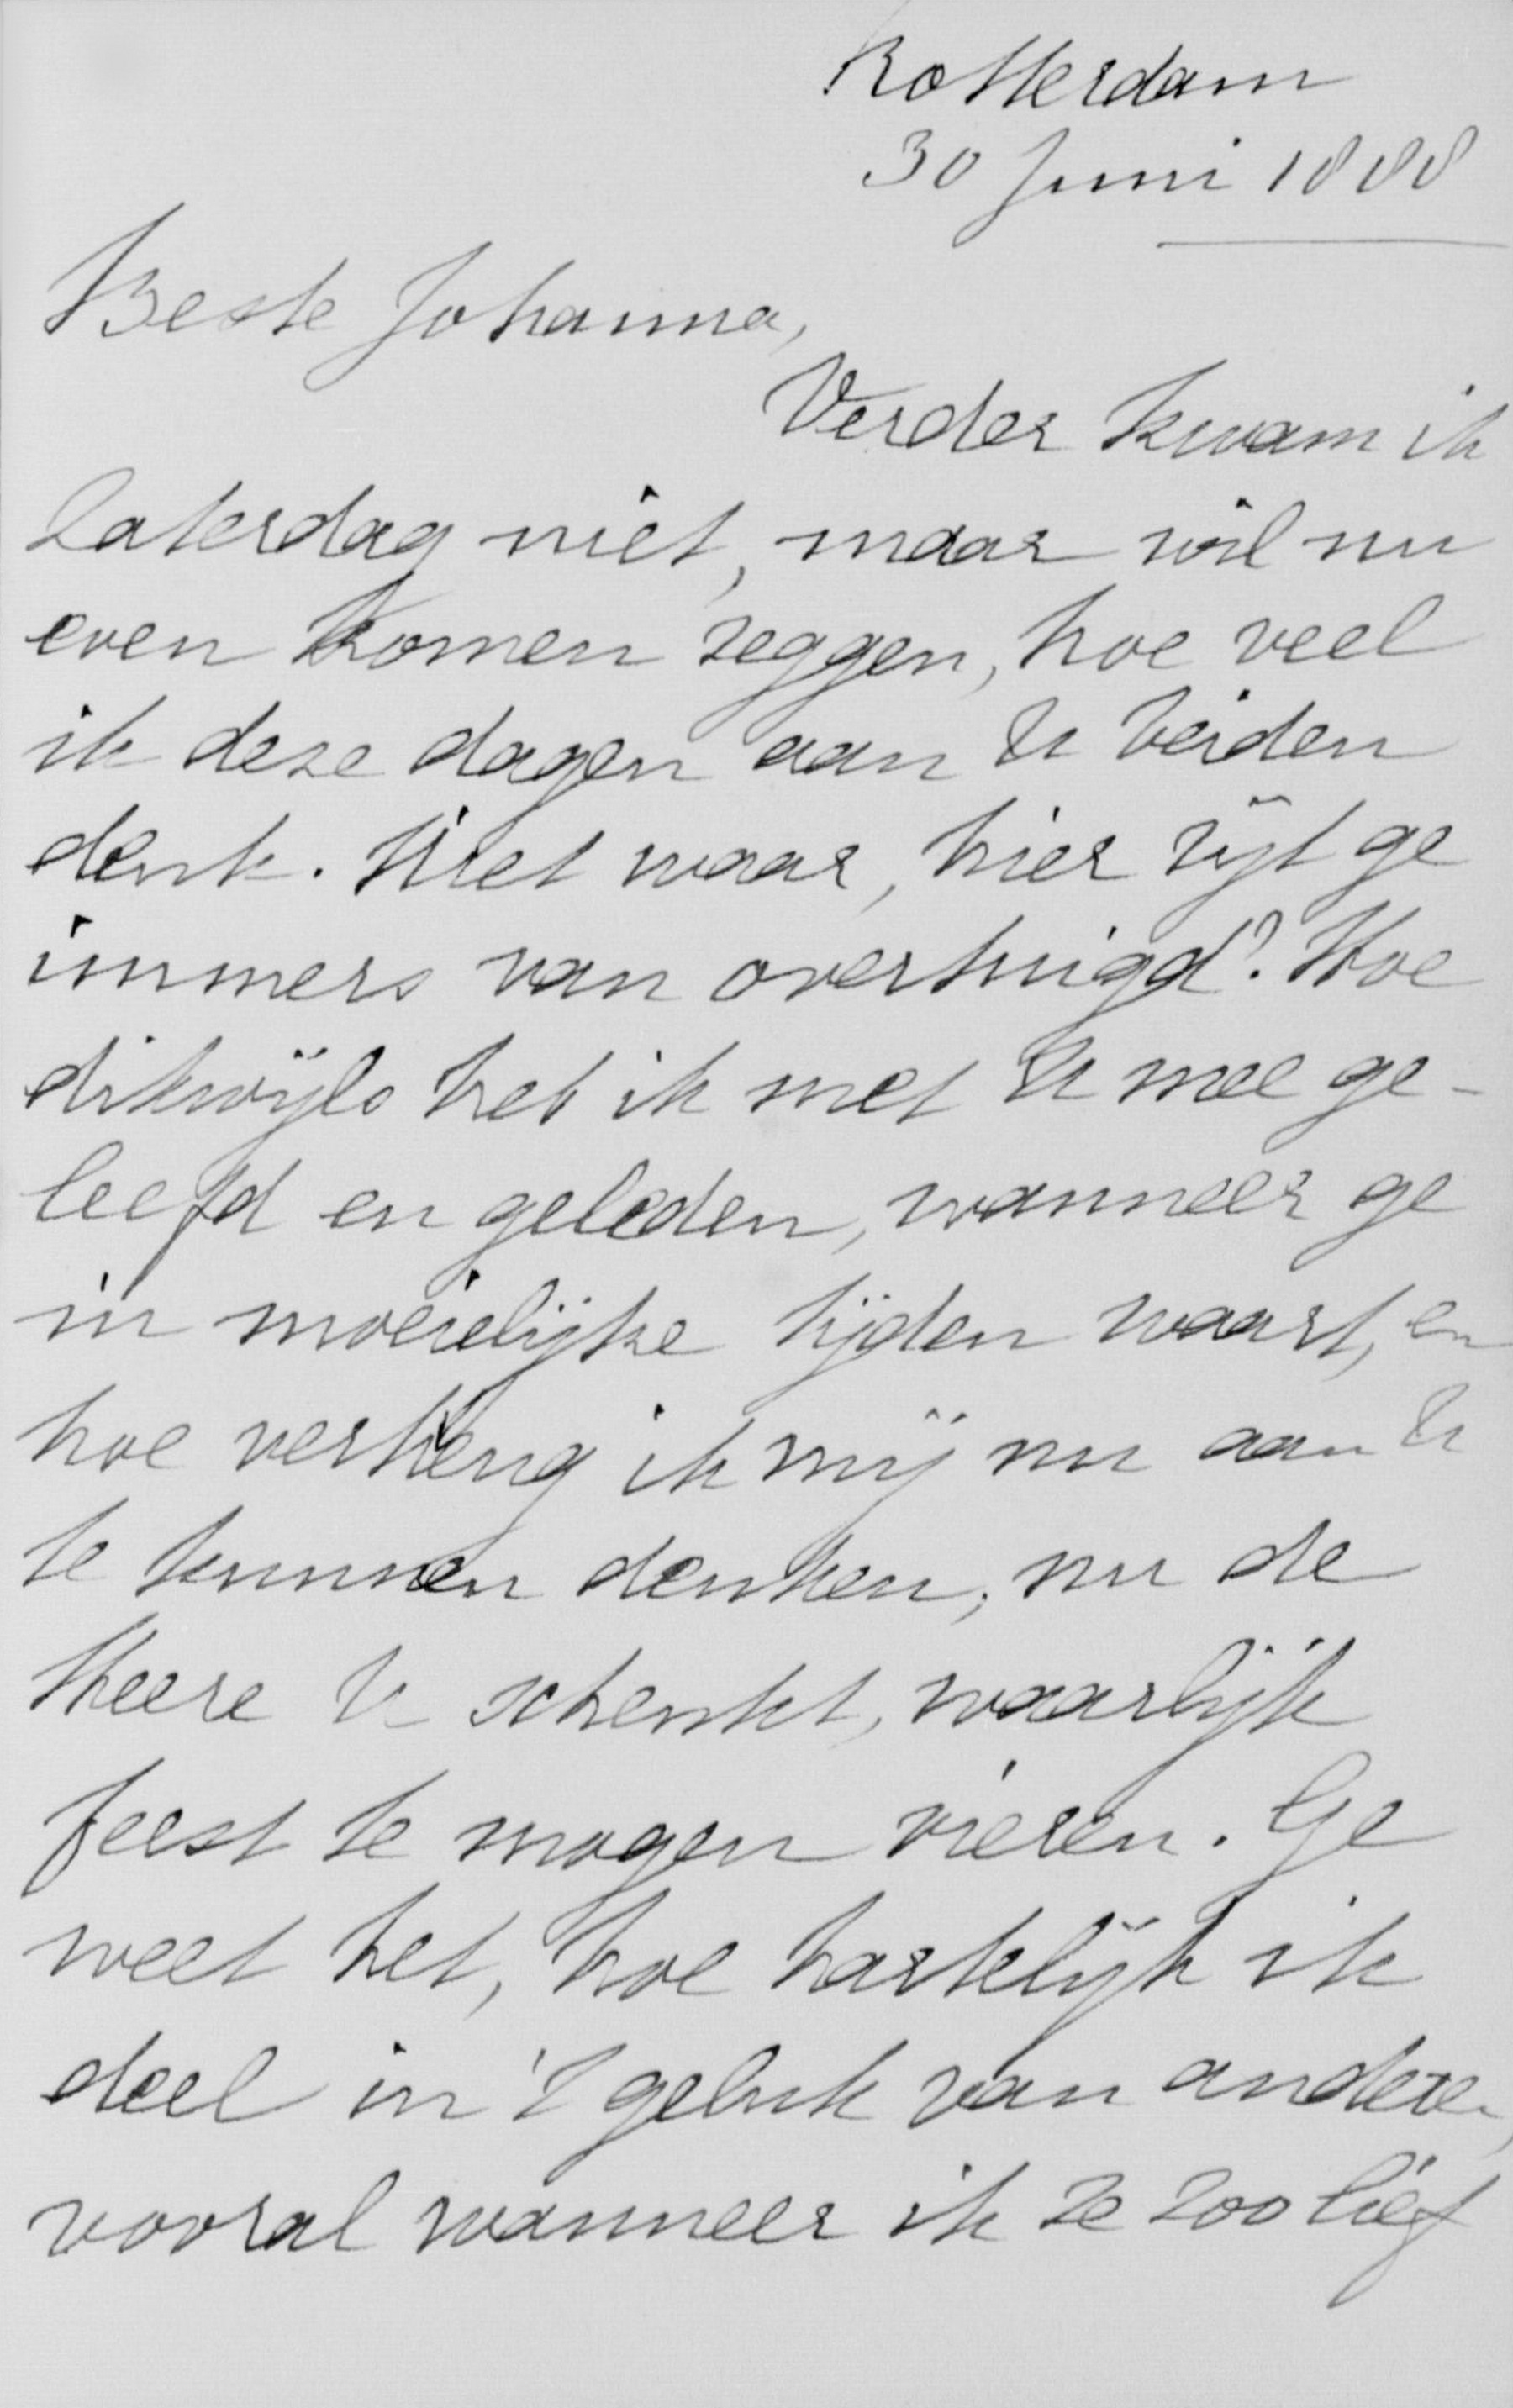 Rotterdam
30 Juni 1888
Beste Johanna,
Verder kwam ik
Zaterdag niet, maar wil nu
even komen zeggen, hoe veel
ik deze dagen aan U beiden
denk. Niet waar, hier zijt ge
immers van overtuigd? Hoe
dikwijls heb ik met U mee ge-
leefd en geleden, wanneer ge
in moeielijke tijden waart, en
hoe verheug ik mij nu aan U
te kunnen denken, nu de
Heere U schenkt, waarlijk
feest te mogen vieren. Ge
weet het, hoe hartelijk ik
deel in 't geluk van anderen,
vooral wanneer ik ze zoo lief